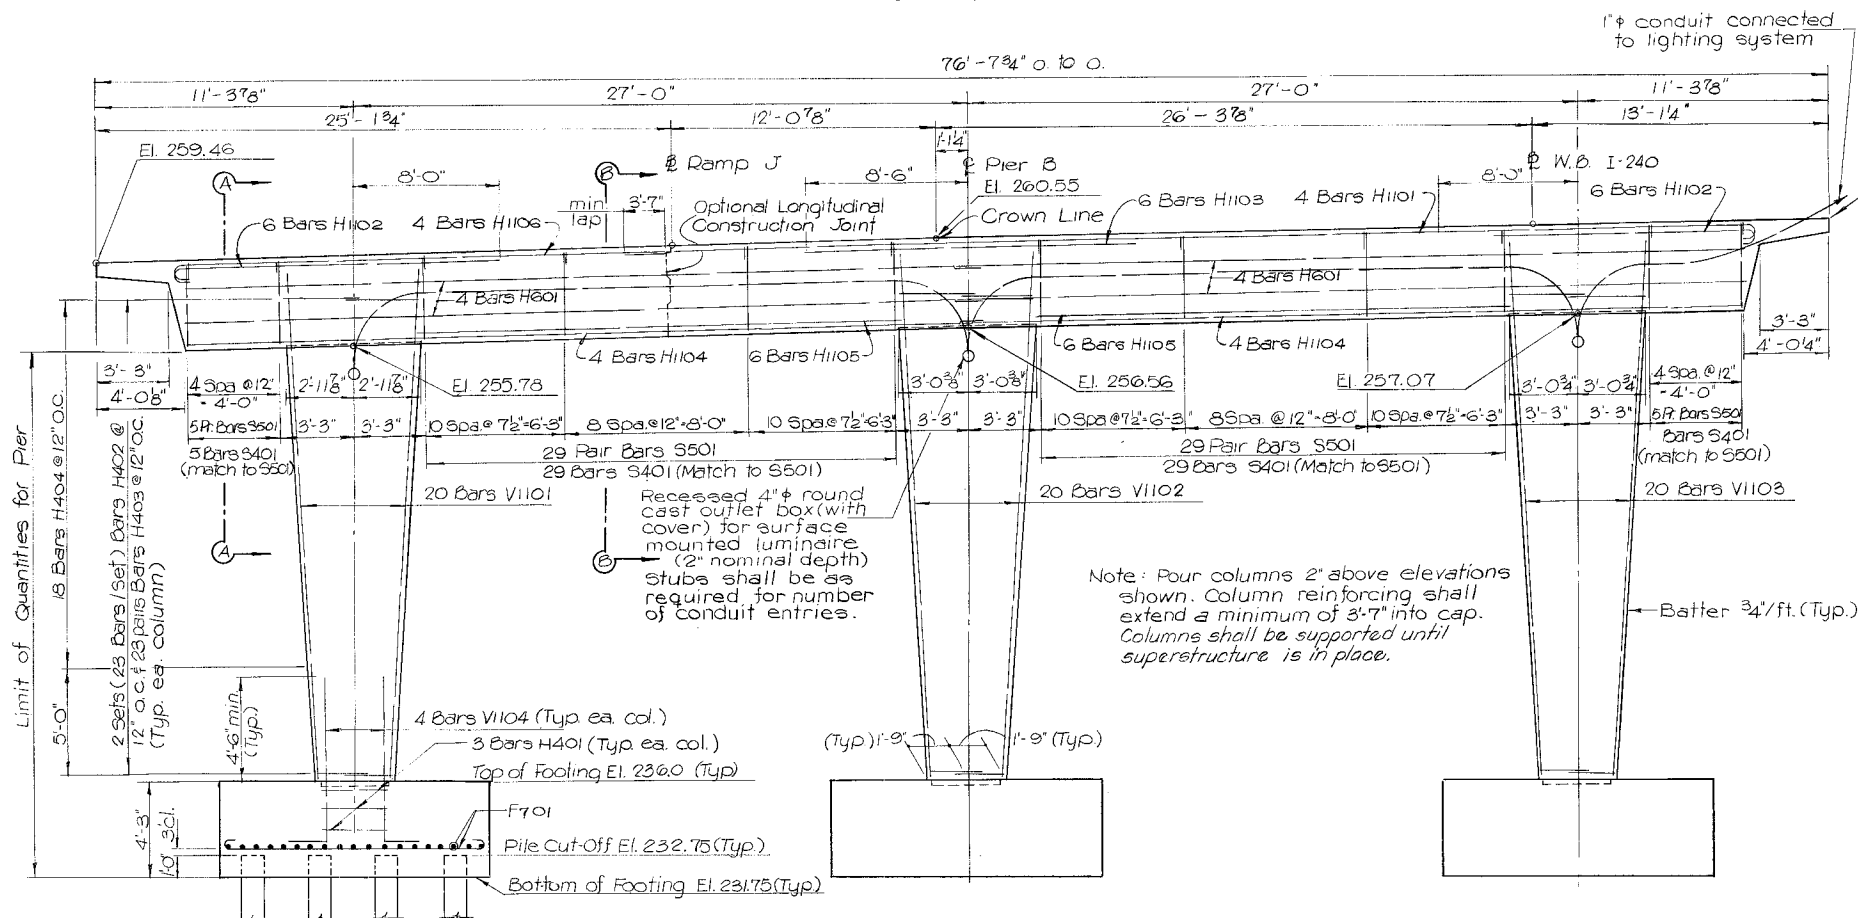 1"φ conduit connected
to lighting system
76'-7¾" O. to O.
11'-3⅞"
27'-0"
27'-0"
11'-3⅞"
25'-1¾"
12'-0⅞"
26'-3⅞"
13'-1¼"
1'-1¼"
El. 259.46
A
8'-0"
B
℄ Ramp J
8'-6"
℄ Pier B
El. 260.55
8'-0"
℄ W.B. I-240
min
lap
3'-7"
Optional Longitudinal
Construction Joint
Crown Line
6 Bars H1102
4 Bars H1106
6 Bars H1103
4 Bars H1101
6 Bars H1102
4 Bars H601
4 Bars H601
4 Bars H1104
6 Bars H1105
6 Bars H1105
4 Bars H1104
3'-3"
4'-0¼"
3'-3"
4'-0⅛"
El. 255.78
El. 256.56
El. 257.07
4 Spa @ 12"
= 4'-0"
2'-11⅞"
2'-11⅞"
3'-0⅜"
3'-0⅜"
3'-0¾"
3'-0¾"
4 Spa. @ 12"
= 4'-0"
5 Pr. Bars S501
3'-3"
3'-3"
10 Spa. @ 7½"=6'-3"
8 Spa. @ 12"=8'-0"
10 Spa. @ 7½"=6'-3"
3'-3"
3'-3"
10 Spa @ 7½"=6'-3"
8 Spa. @ 12"=8'-0"
10 Spa. @ 7½"=6'-3"
3'-3"
3'-3"
5 Pr. Bars S501
5 Bars S401
(match to S501)
29 Pair Bars S501
29 Bars S401 (Match to S501)
29 Pair Bars S501
29 Bars S401 (Match to S501)
Bars S401
(match to S501)
20 Bars V1101
20 Bars V1102
20 Bars V1103
A
B
Recessed 4"φ round
cast outlet box (with
cover) for surface
mounted luminaire
(2" nominal depth)
Stubs shall be as
required for number
of conduit entries.
Note: Pour columns 2" above elevations
shown. Column reinforcing shall
extend a minimum of 3'-7" into cap.
Columns shall be supported until
superstructure is in place.
Batter ¾"/ft. (Typ.)
Limit of Quantities for Pier
18 Bars H404 @ 12" O.C.
5'-0"
2 Sets (23 Bars/Set) Bars H402 @
12" o.c. & 23 pairs Bars H403 @ 12" O.C.
(Typ. ea. column)
4'-6" min.
(Typ.)
4 Bars V1104 (Typ. ea. col.)
3 Bars H401 (Typ. ea. col.)
Top of Footing El. 236.0 (Typ)
(Typ.) 1'-9"
1'-9" (Typ.)
4'-3"
3" cl.
1'-0"
F701
Pile Cut-Off El. 232.75 (Typ.)
Bottom of Footing El. 231.75 (Typ.)